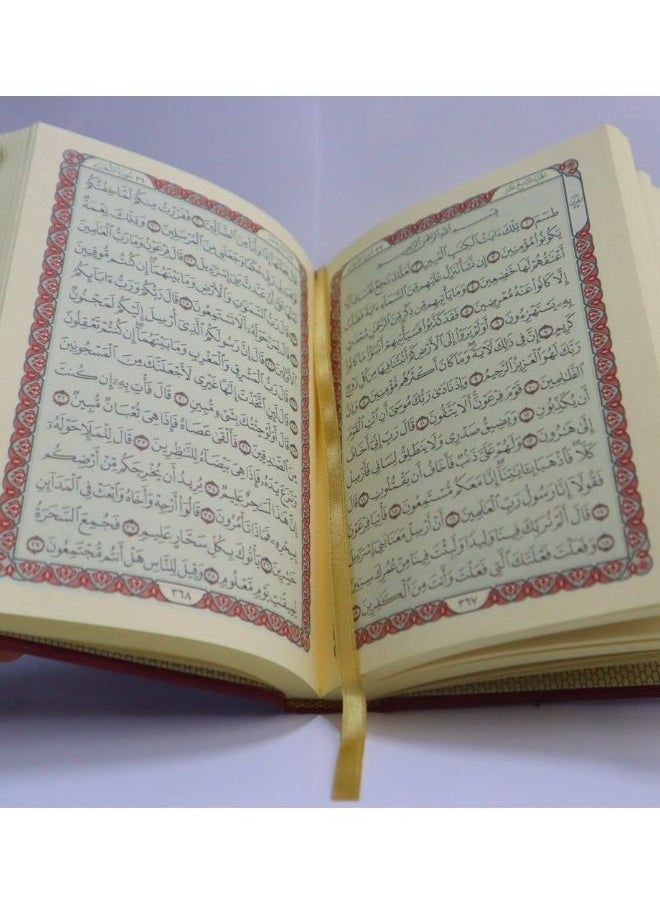 الجزء التاسع عشر
بسم الله الرحمن الرحيم
طسٓمٓ ١ تِلْكَ ءَايَٰتُ ٱلْكِتَٰبِ ٱلْمُبِينِ ٢ لَعَلَّكَ بَٰخِعٌ نَّفْسَكَ أَلَّا
يَكُونُوا۟ مُؤْمِنِينَ ٣ إِن نَّشَأْ نُنَزِّلْ عَلَيْهِم مِّنَ ٱلسَّمَآءِ ءَايَةً فَظَلَّتْ
أَعْنَٰقُهُمْ لَهَا خَٰضِعِينَ ٤ وَمَا يَأْتِيهِم مِّن ذِكْرٍ مِّنَ ٱلرَّحْمَٰنِ مُحْدَثٍ
إِلَّا كَانُوا۟ عَنْهُ مُعْرِضِينَ ٥ فَقَدْ كَذَّبُوا۟ فَسَيَأْتِيهِمْ أَنۢبَٰٓؤُا۟ مَا كَانُوا۟
بِهِۦ يَسْتَهْزِءُونَ ٦ أَوَلَمْ يَرَوْا۟ إِلَى ٱلْأَرْضِ كَمْ أَنۢبَتْنَا فِيهَا مِن كُلِّ زَوْجٍ
كَرِيمٍ ٧ إِنَّ فِى ذَٰلِكَ لَءَايَةً وَمَا كَانَ أَكْثَرُهُم مُّؤْمِنِينَ ٨ وَإِنَّ
رَبَّكَ لَهُوَ ٱلْعَزِيزُ ٱلرَّحِيمُ ٩ وَإِذْ نَادَىٰ رَبُّكَ مُوسَىٰٓ أَنِ ٱئْتِ ٱلْقَوْمَ
ٱلظَّٰلِمِينَ ١٠ قَوْمَ فِرْعَوْنَ أَلَا يَتَّقُونَ ١١ قَالَ رَبِّ إِنِّىٓ أَخَافُ
أَن يُكَذِّبُونِ ١٢ وَيَضِيقُ صَدْرِى وَلَا يَنطَلِقُ لِسَانِى فَأَرْسِلْ
إِلَىٰ هَٰرُونَ ١٣ وَلَهُمْ عَلَىَّ ذَنۢبٌ فَأَخَافُ أَن يَقْتُلُونِ ١٤ قَالَ
كَلَّا فَٱذْهَبَا بِـَٔايَٰتِنَآ إِنَّا مَعَكُم مُّسْتَمِعُونَ ١٥ فَأْتِيَا فِرْعَوْنَ
فَقُولَآ إِنَّا رَسُولُ رَبِّ ٱلْعَٰلَمِينَ ١٦ أَنْ أَرْسِلْ مَعَنَا بَنِىٓ إِسْرَٰٓءِيلَ
١٧ قَالَ أَلَمْ نُرَبِّكَ فِينَا وَلِيدًا وَلَبِثْتَ فِينَا مِنْ عُمُرِكَ سِنِينَ
١٨ وَفَعَلْتَ فَعْلَتَكَ ٱلَّتِى فَعَلْتَ وَأَنتَ مِنَ ٱلْكَٰفِرِينَ ١٩
٣٦٧
٢٦ سورة الشعراء
قَالَ فَعَلْتُهَآ إِذًا وَأَنَا۠ مِنَ ٱلضَّآلِّينَ ٢٠ فَفَرَرْتُ مِنكُمْ لَمَّا خِفْتُكُمْ
فَوَهَبَ لِى رَبِّى حُكْمًا وَجَعَلَنِى مِنَ ٱلْمُرْسَلِينَ ٢١ وَتِلْكَ نِعْمَةٌ
تَمُنُّهَا عَلَىَّ أَنْ عَبَّدتَّ بَنِىٓ إِسْرَٰٓءِيلَ ٢٢ قَالَ فِرْعَوْنُ وَمَا رَبُّ ٱلْعَٰلَمِينَ
٢٣ قَالَ رَبُّ ٱلسَّمَٰوَٰتِ وَٱلْأَرْضِ وَمَا بَيْنَهُمَآ إِن كُنتُم مُّوقِنِينَ
٢٤ قَالَ لِمَنْ حَوْلَهُۥٓ أَلَا تَسْتَمِعُونَ ٢٥ قَالَ رَبُّكُمْ وَرَبُّ ءَابَآئِكُمُ
ٱلْأَوَّلِينَ ٢٦ قَالَ إِنَّ رَسُولَكُمُ ٱلَّذِىٓ أُرْسِلَ إِلَيْكُمْ لَمَجْنُونٌ
٢٧ قَالَ رَبُّ ٱلْمَشْرِقِ وَٱلْمَغْرِبِ وَمَا بَيْنَهُمَآ إِن كُنتُمْ تَعْقِلُونَ
٢٨ قَالَ لَئِنِ ٱتَّخَذْتَ إِلَٰهًا غَيْرِى لَأَجْعَلَنَّكَ مِنَ ٱلْمَسْجُونِينَ
٢٩ قَالَ أَوَلَوْ جِئْتُكَ بِشَىْءٍ مُّبِينٍ ٣٠ قَالَ فَأْتِ بِهِۦٓ إِن كُنتَ
مِنَ ٱلصَّٰدِقِينَ ٣١ فَأَلْقَىٰ عَصَاهُ فَإِذَا هِىَ ثُعْبَانٌ مُّبِينٌ ٣٢
وَنَزَعَ يَدَهُۥ فَإِذَا هِىَ بَيْضَآءُ لِلنَّٰظِرِينَ ٣٣ قَالَ لِلْمَلَإِ حَوْلَهُۥٓ
إِنَّ هَٰذَا لَسَٰحِرٌ عَلِيمٌ ٣٤ يُرِيدُ أَن يُخْرِجَكُم مِّنْ أَرْضِكُم
بِسِحْرِهِۦ فَمَاذَا تَأْمُرُونَ ٣٥ قَالُوٓا۟ أَرْجِهْ وَأَخَاهُ وَٱبْعَثْ فِى ٱلْمَدَآئِنِ
حَٰشِرِينَ ٣٦ يَأْتُوكَ بِكُلِّ سَحَّارٍ عَلِيمٍ ٣٧ فَجُمِعَ ٱلسَّحَرَةُ
لِمِيقَٰتِ يَوْمٍ مَّعْلُومٍ ٣٨ وَقِيلَ لِلنَّاسِ هَلْ أَنتُم مُّجْتَمِعُونَ ٣٩
٣٦٨